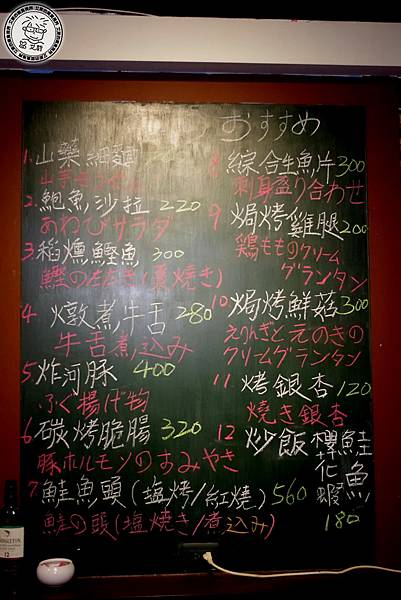 おすすめ
1. 山藥細麵
2. 鮑魚沙拉 220
あわびサラダ
3. 稻燻鰹魚 300
鰹のたたき(藁焼き)
4 燉煮牛舌 280
牛舌煮込み
5 炸河豚 400
ふぐ揚げ物
6 碳烤脆腸 320
豚ホルモンのすみやき
7. 鮭魚頭(塩烤/紅燒) 560
鮭の頭(塩焼き/煮込み)
8 綜合生魚片 300
刺身盛り合わせ
9 焗烤雞腿 200
鶏もものクリーム
グランタン
10 焗烤鮮菇 300
えりんぎとえのきの
クリームグランタン
11 烤銀杏 120
焼き銀杏
12 炒飯 櫻花蝦 鮭魚
180